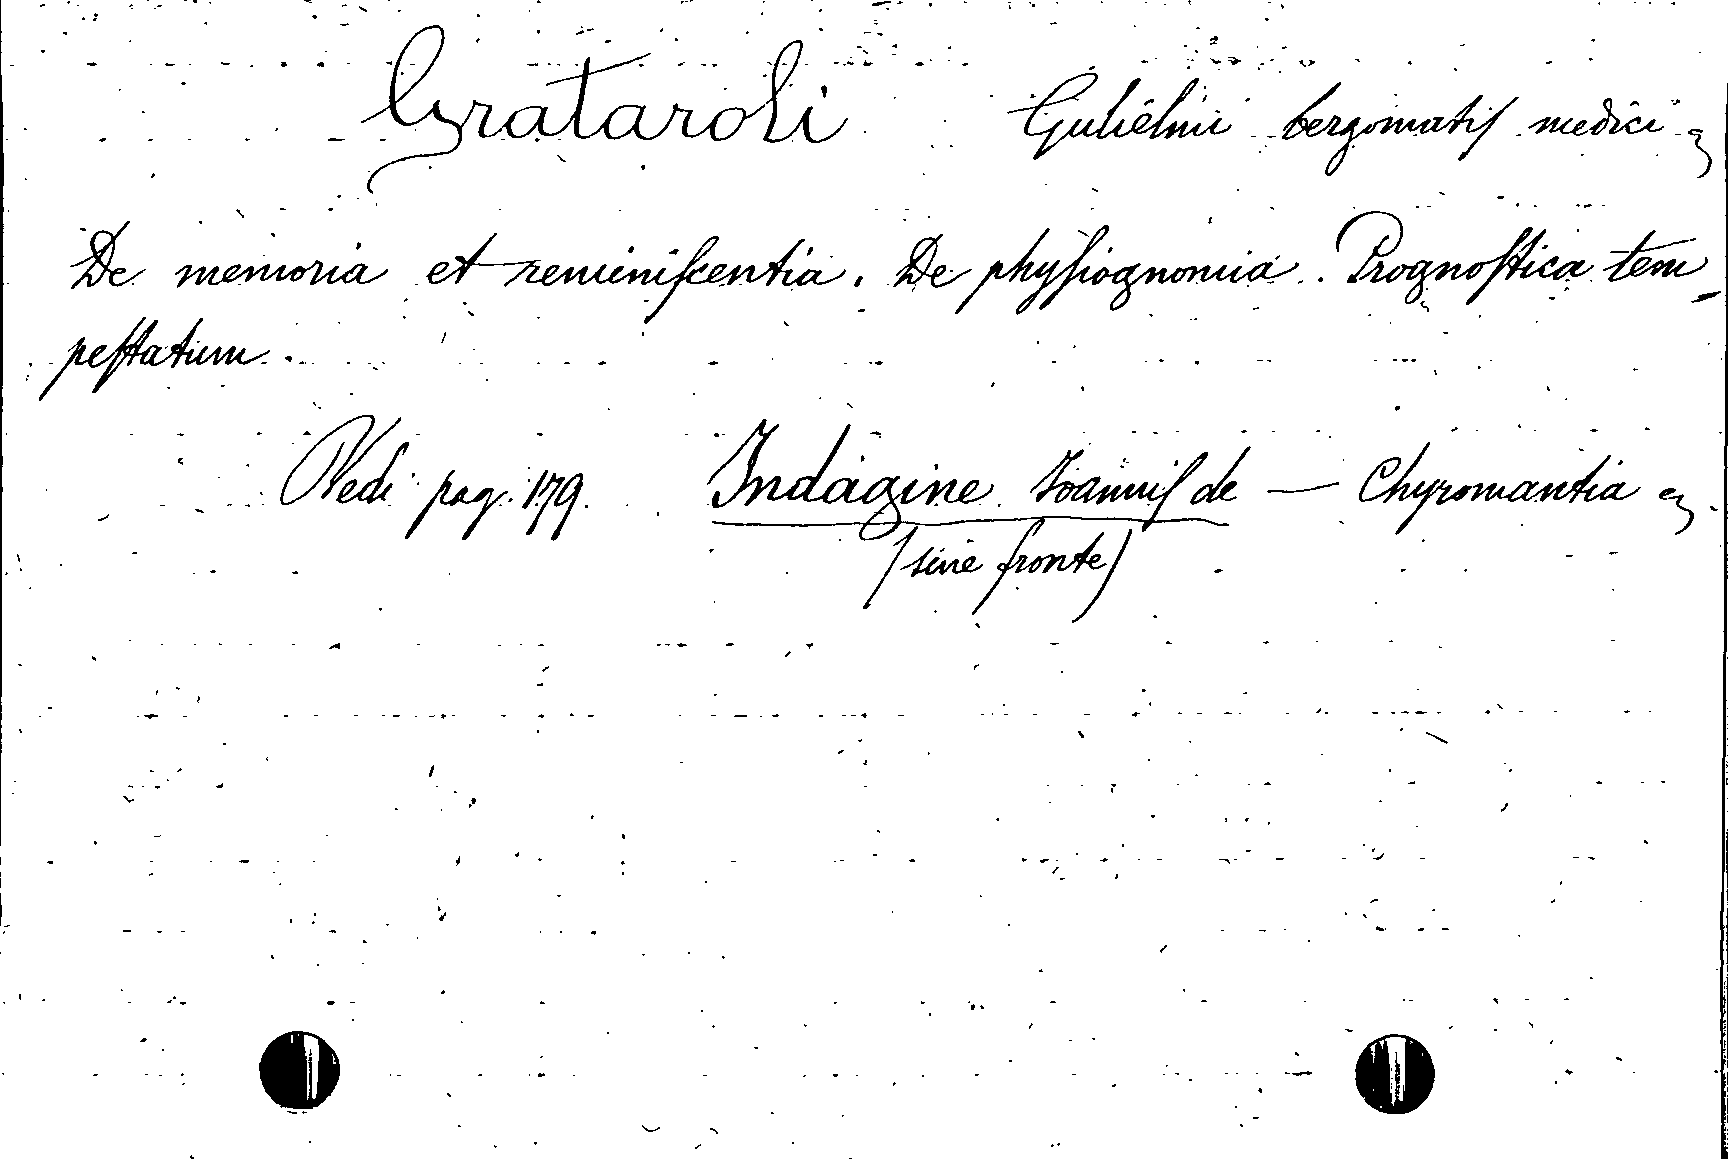 Grataroli Gulielmi bergomatiſ medici
De memoria et reminiſcentia. De phyſiognomia. Prognoſtica tem
peſtatum.
Vedi pag. 179. Indagine Ioanniſ de — Chyromantia
(sine fronte)